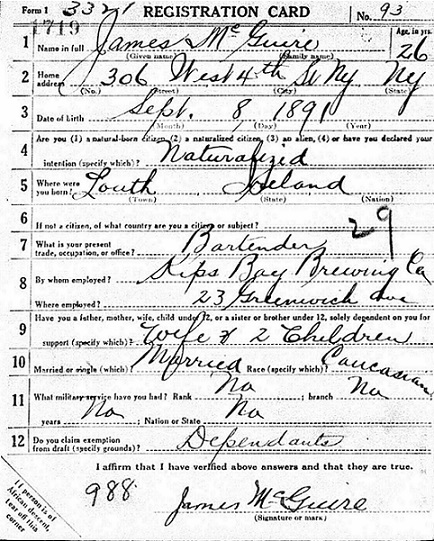 Form 1 3321 REGISTRATION CARD No. 93
1719
1 Name in full James McGuire Age, in yrs. 26
(Given name) (Family name)
2 Home address 306 West 4th St Ny Ny
(No.) (Street) (City) (State)
3 Date of birth Sept. 8 1891
(Month) (Day) (Year)
4 Are you (1) a natural-born citizen, (2) a naturalized citizen, (3) an alien, (4) or have you declared your
intention (specify which)? Naturalizid
5 Where were you born? Louth Ireland
(Town) (State) (Nation)
6 If not a citizen, of what country are you a citizen or subject? 29
7 What is your present trade, occupation, or office? Bartender
8 By whom employed? Kips Bay Brewing Co
Where employed? 23 Greenwich ave
9 Have you a father, mother, wife, child under 12, or a sister or brother under 12, solely dependent on you for
support (specify which)? Wife & 2 Children
10 Married or single (which)? Married Race (specify which)? Caucasian
11 What military service have you had? Rank No ; branch No
years No ; Nation or State No
12 Do you claim exemption from draft (specify grounds)? Dependants
I affirm that I have verified above answers and that they are true.
988 James McGuire
(Signature or mark)
If person is of
African descent,
tear off this
corner